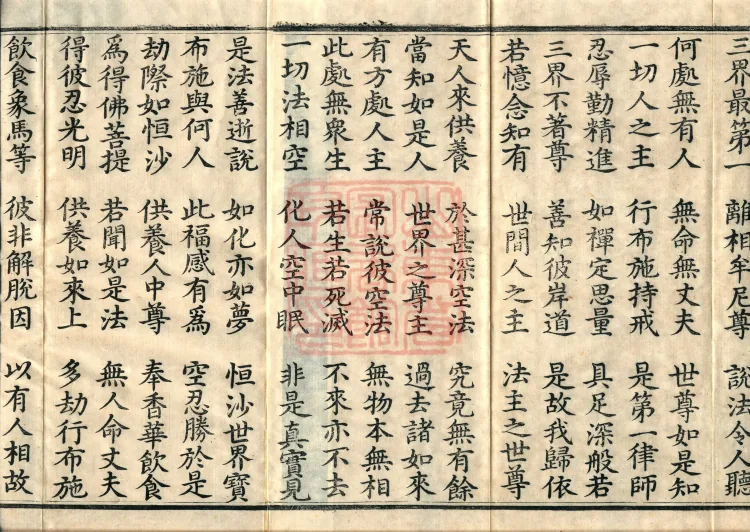 三界最第一 離相牟尼尊 說法令人聽
何處無有人 無命無丈夫 世尊如是知
一切人之主 行布施持戒 是第一律師
忍辱勤精進 如禪定思量 具足深般若
三界不著尊 善知彼岸道 是故我歸依
若憶念知有 世間人之主 法主之世尊
天人來供養 於甚深空法 究竟無有餘
當知如是人 世界之尊主 過去諸如來
有方處人主 常說彼空法 無物本無相
此處無衆生 若生若死滅 不來亦不去
一切法相空 化人空中眠 非是真實見
是法善逝說 如化亦如夢 恒沙世界寶
布施與何人 此福感有爲 空忍勝於是
劫際如恒沙 供養人中尊 奉香華飲食
爲得佛菩提 若聞如是法 無人命丈夫
得彼忍光明 供養如來上 多劫行布施
飲食象馬等 彼非解脫因 以有人相故